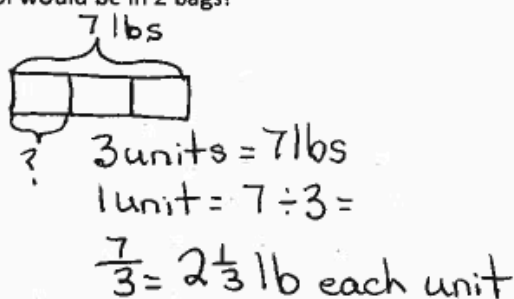 would be in 2 bags?
7 lbs
?
3 units = 7 lbs
1 unit = 7 ÷ 3 =
7/3 = 2 1/3 lb each unit